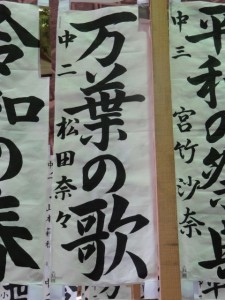 平和の祭典
中三 宮竹沙奈
万葉の歌
中二 松田奈々
令和の春